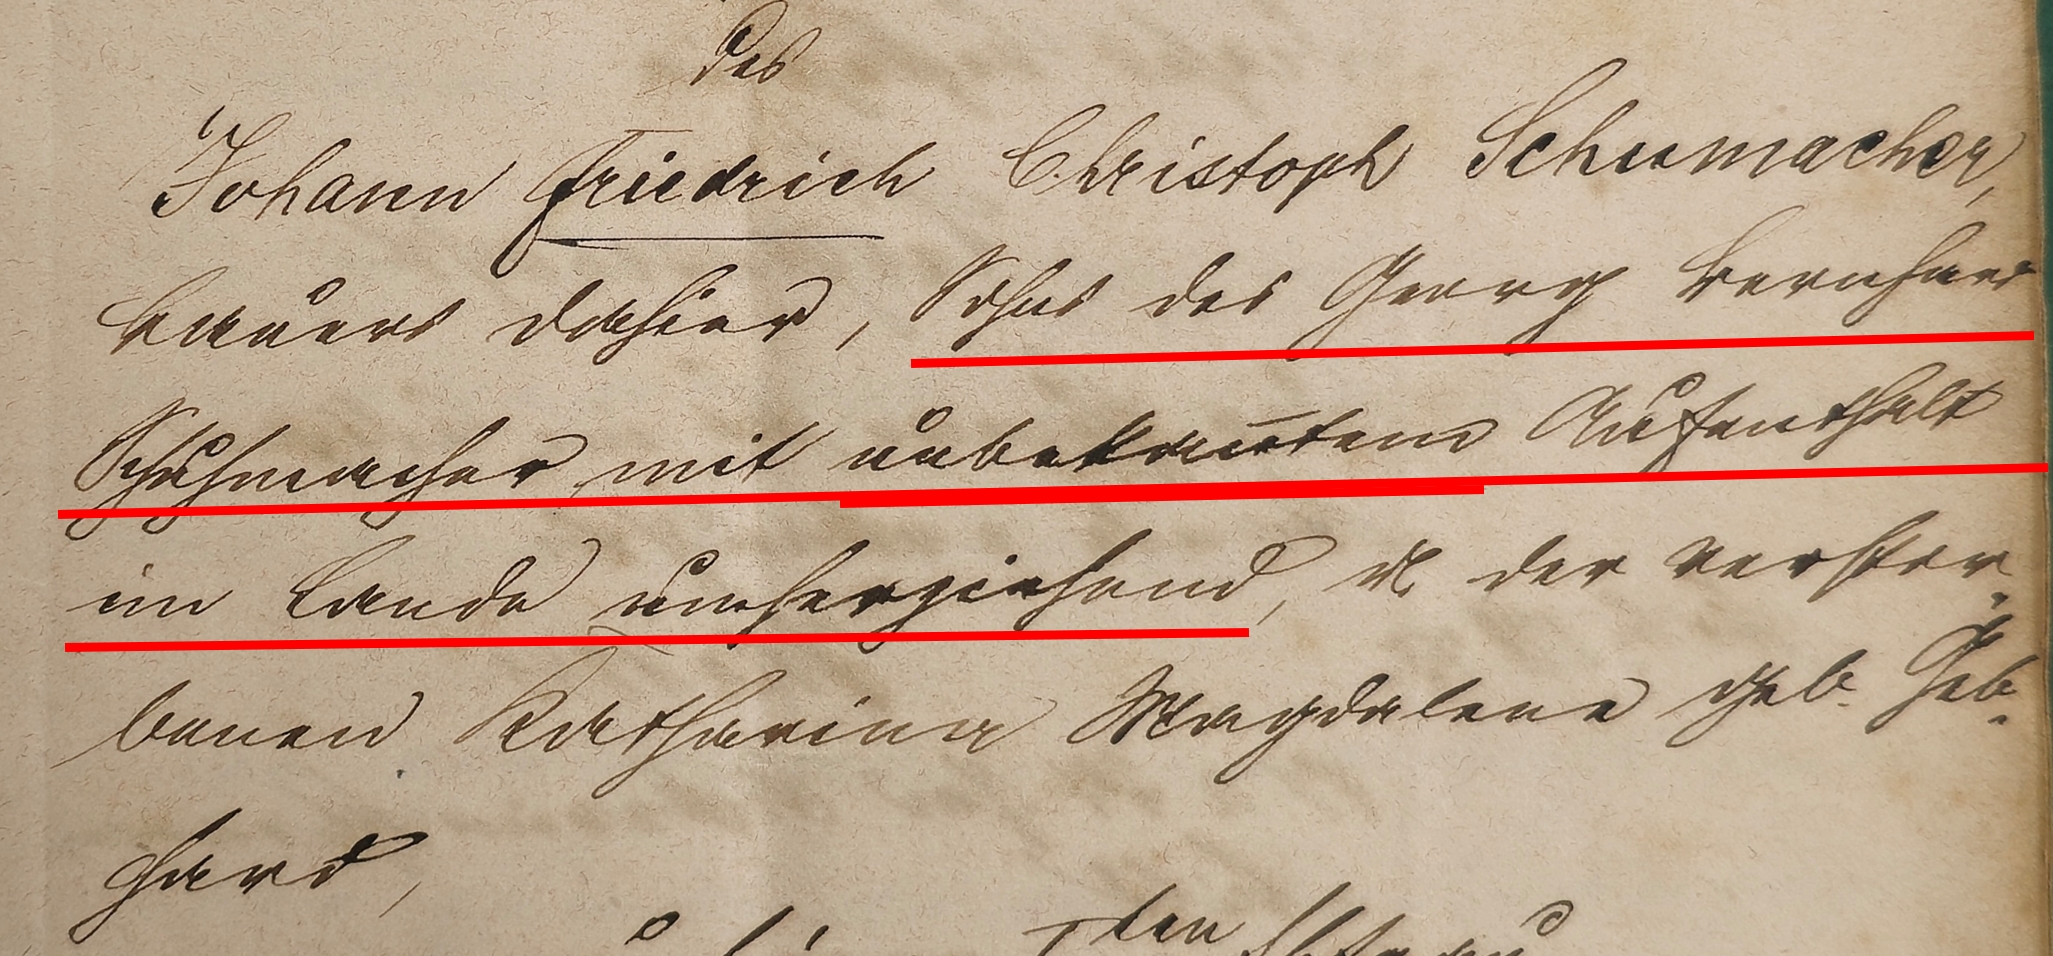 des
Johann Friedrich Christoph Schumacher,
Bauers dahier, Sohns des Georg Bernhard
Schuhmacher mit unbekanntem Aufenthalt
im Lande umherziehend, u. der verstor-
benen Katharina Magdalena geb. Geb-
hard,
ten